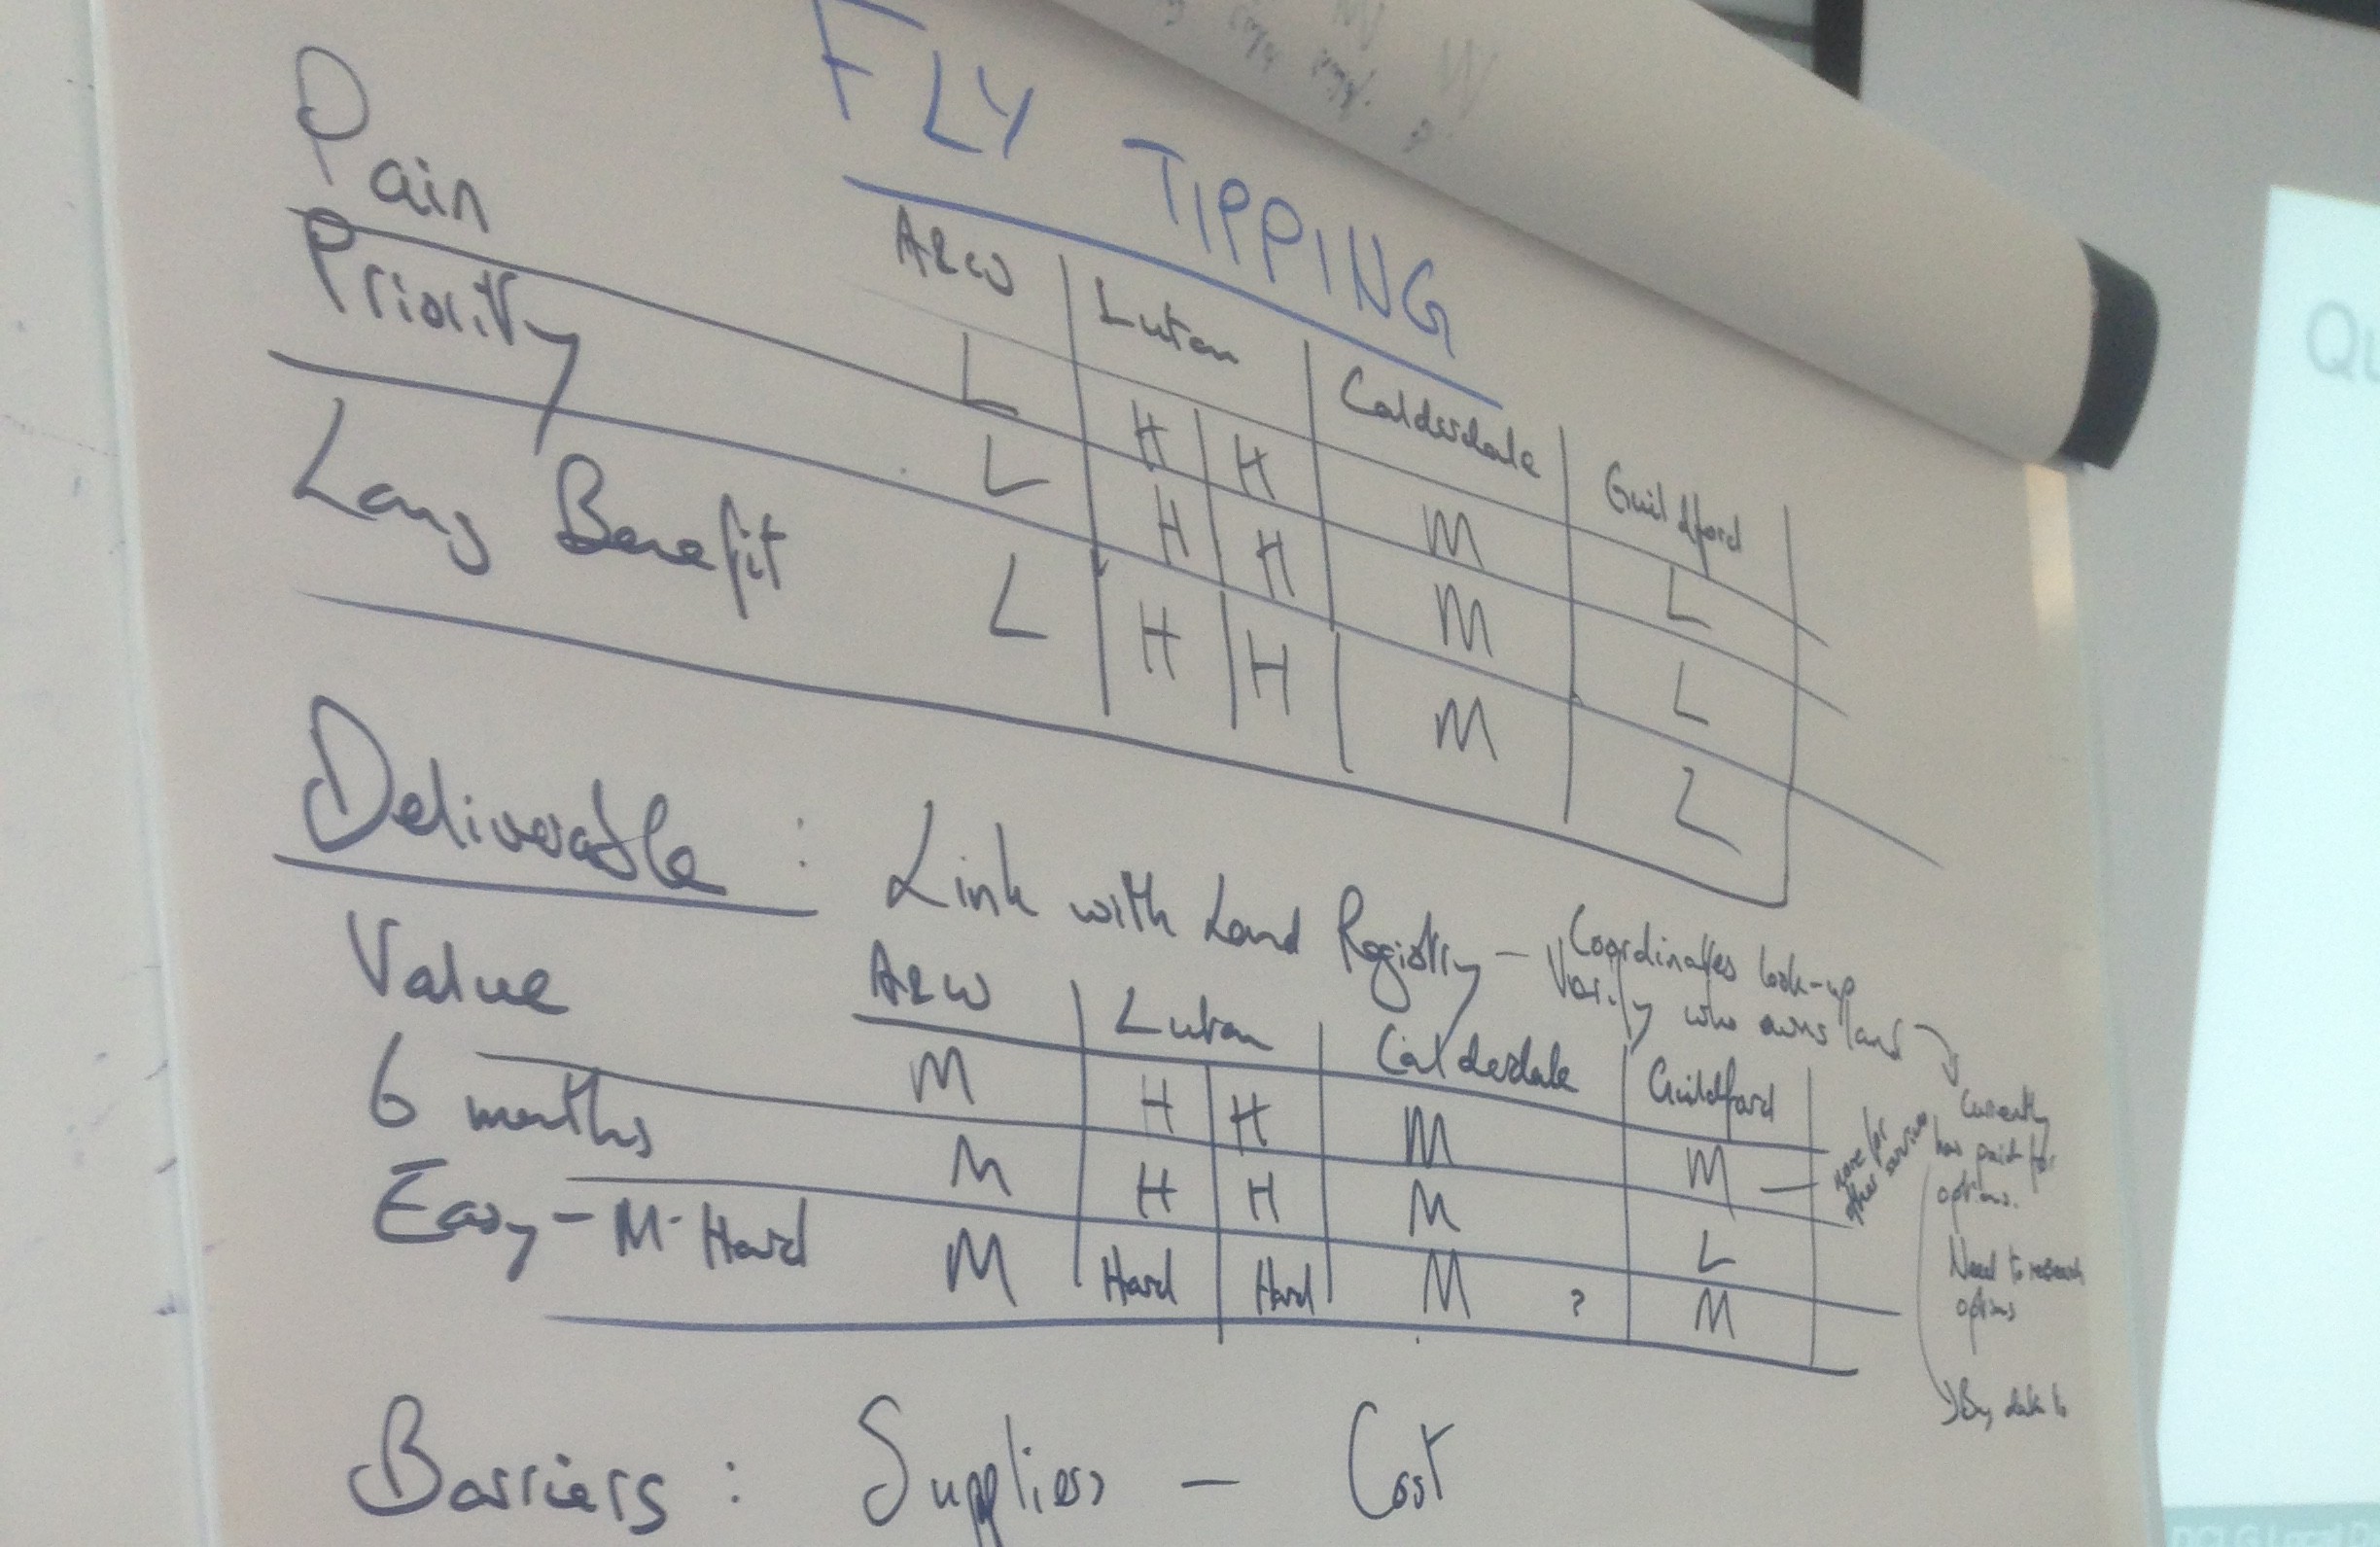 FLY TIPPING
A&W Luton Calderdale Guildford
Pain L H H M L
Priority L H H M L
Long Benefit L H H M L
Deliverable : Link with Land Registry - Coordinates look-up
Verify who owns land
Currently
has paid for
options.
Need to research
options
Buy data to
A&W Luton Calderdale Guildford
Value M H H M M - more for
other services
6 months M H H M L
Easy - M - Hard M Hard Hard M ? M
Barriers : Suppliers - Cost
Qu
DCLG Local D